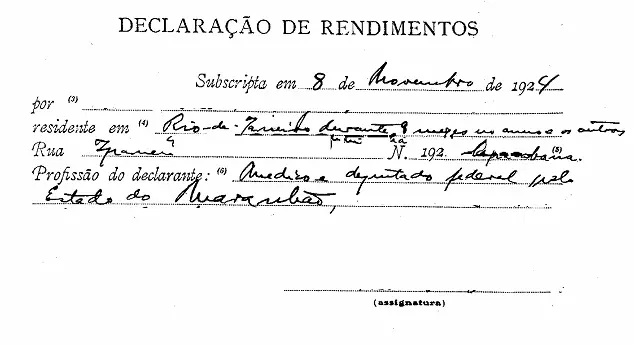 DECLARAÇÃO DE RENDIMENTOS
Subscripta em 8 de Novembro de 1924
por (3)
residente em (4) Rio-de-Janeiro durante 8 mezes no anno e os outros
Rua N. 192 Copacabana. (5)
Profissão do declarante: (6) Medico e deputado federal pelo
Estado do Maranhão,
(assignatura)